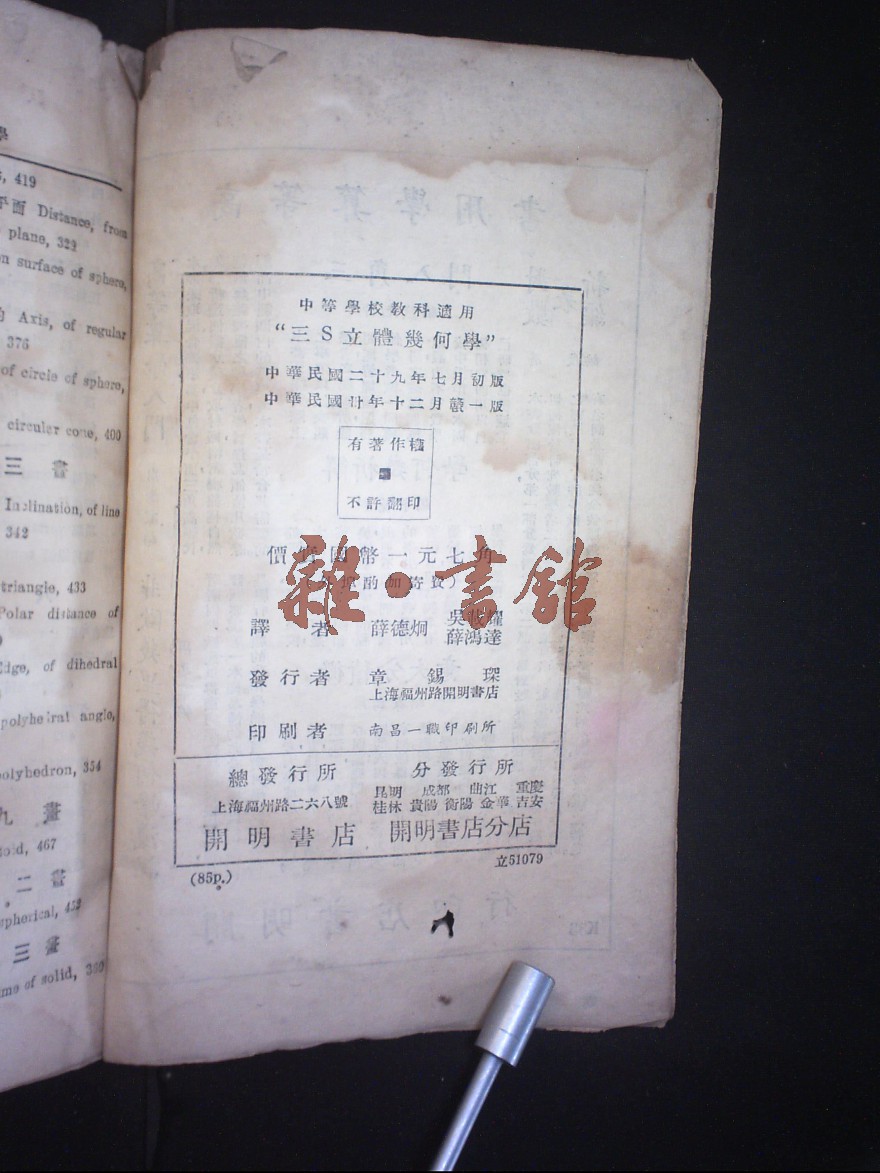 學
, 419
平面 Distance, from
plane, 323
n surface of sphere,
Axis, of regular
376
of circle of sphere,
circular cone, 400
三 畫
Inclination, of line
342
triangle, 433
Polar distance of
Edge, of dihedral
polyhedral angle,
polyhedron, 354
九 畫
467
二 畫
spherical, 452
三 畫
of solid,
中等學校教科適用
“三S立體幾何學”
中華民國二十九年七月初版
中華民國卅年十二月贛一版
有著作權
不許翻印
價 國幣一元七角
酌加寄費)
譯者 薛德炯 吳 耀
薛鴻達
發行者 章錫琛
上海福州路開明書店
印刷者 南昌一職印刷所
總發行所
上海福州路二六八號
開明書店
分發行所
昆明 成都 曲江 重慶
桂林 貴陽 衡陽 金華 吉安
開明書店分店
(85p.)
立51079
雜·書館